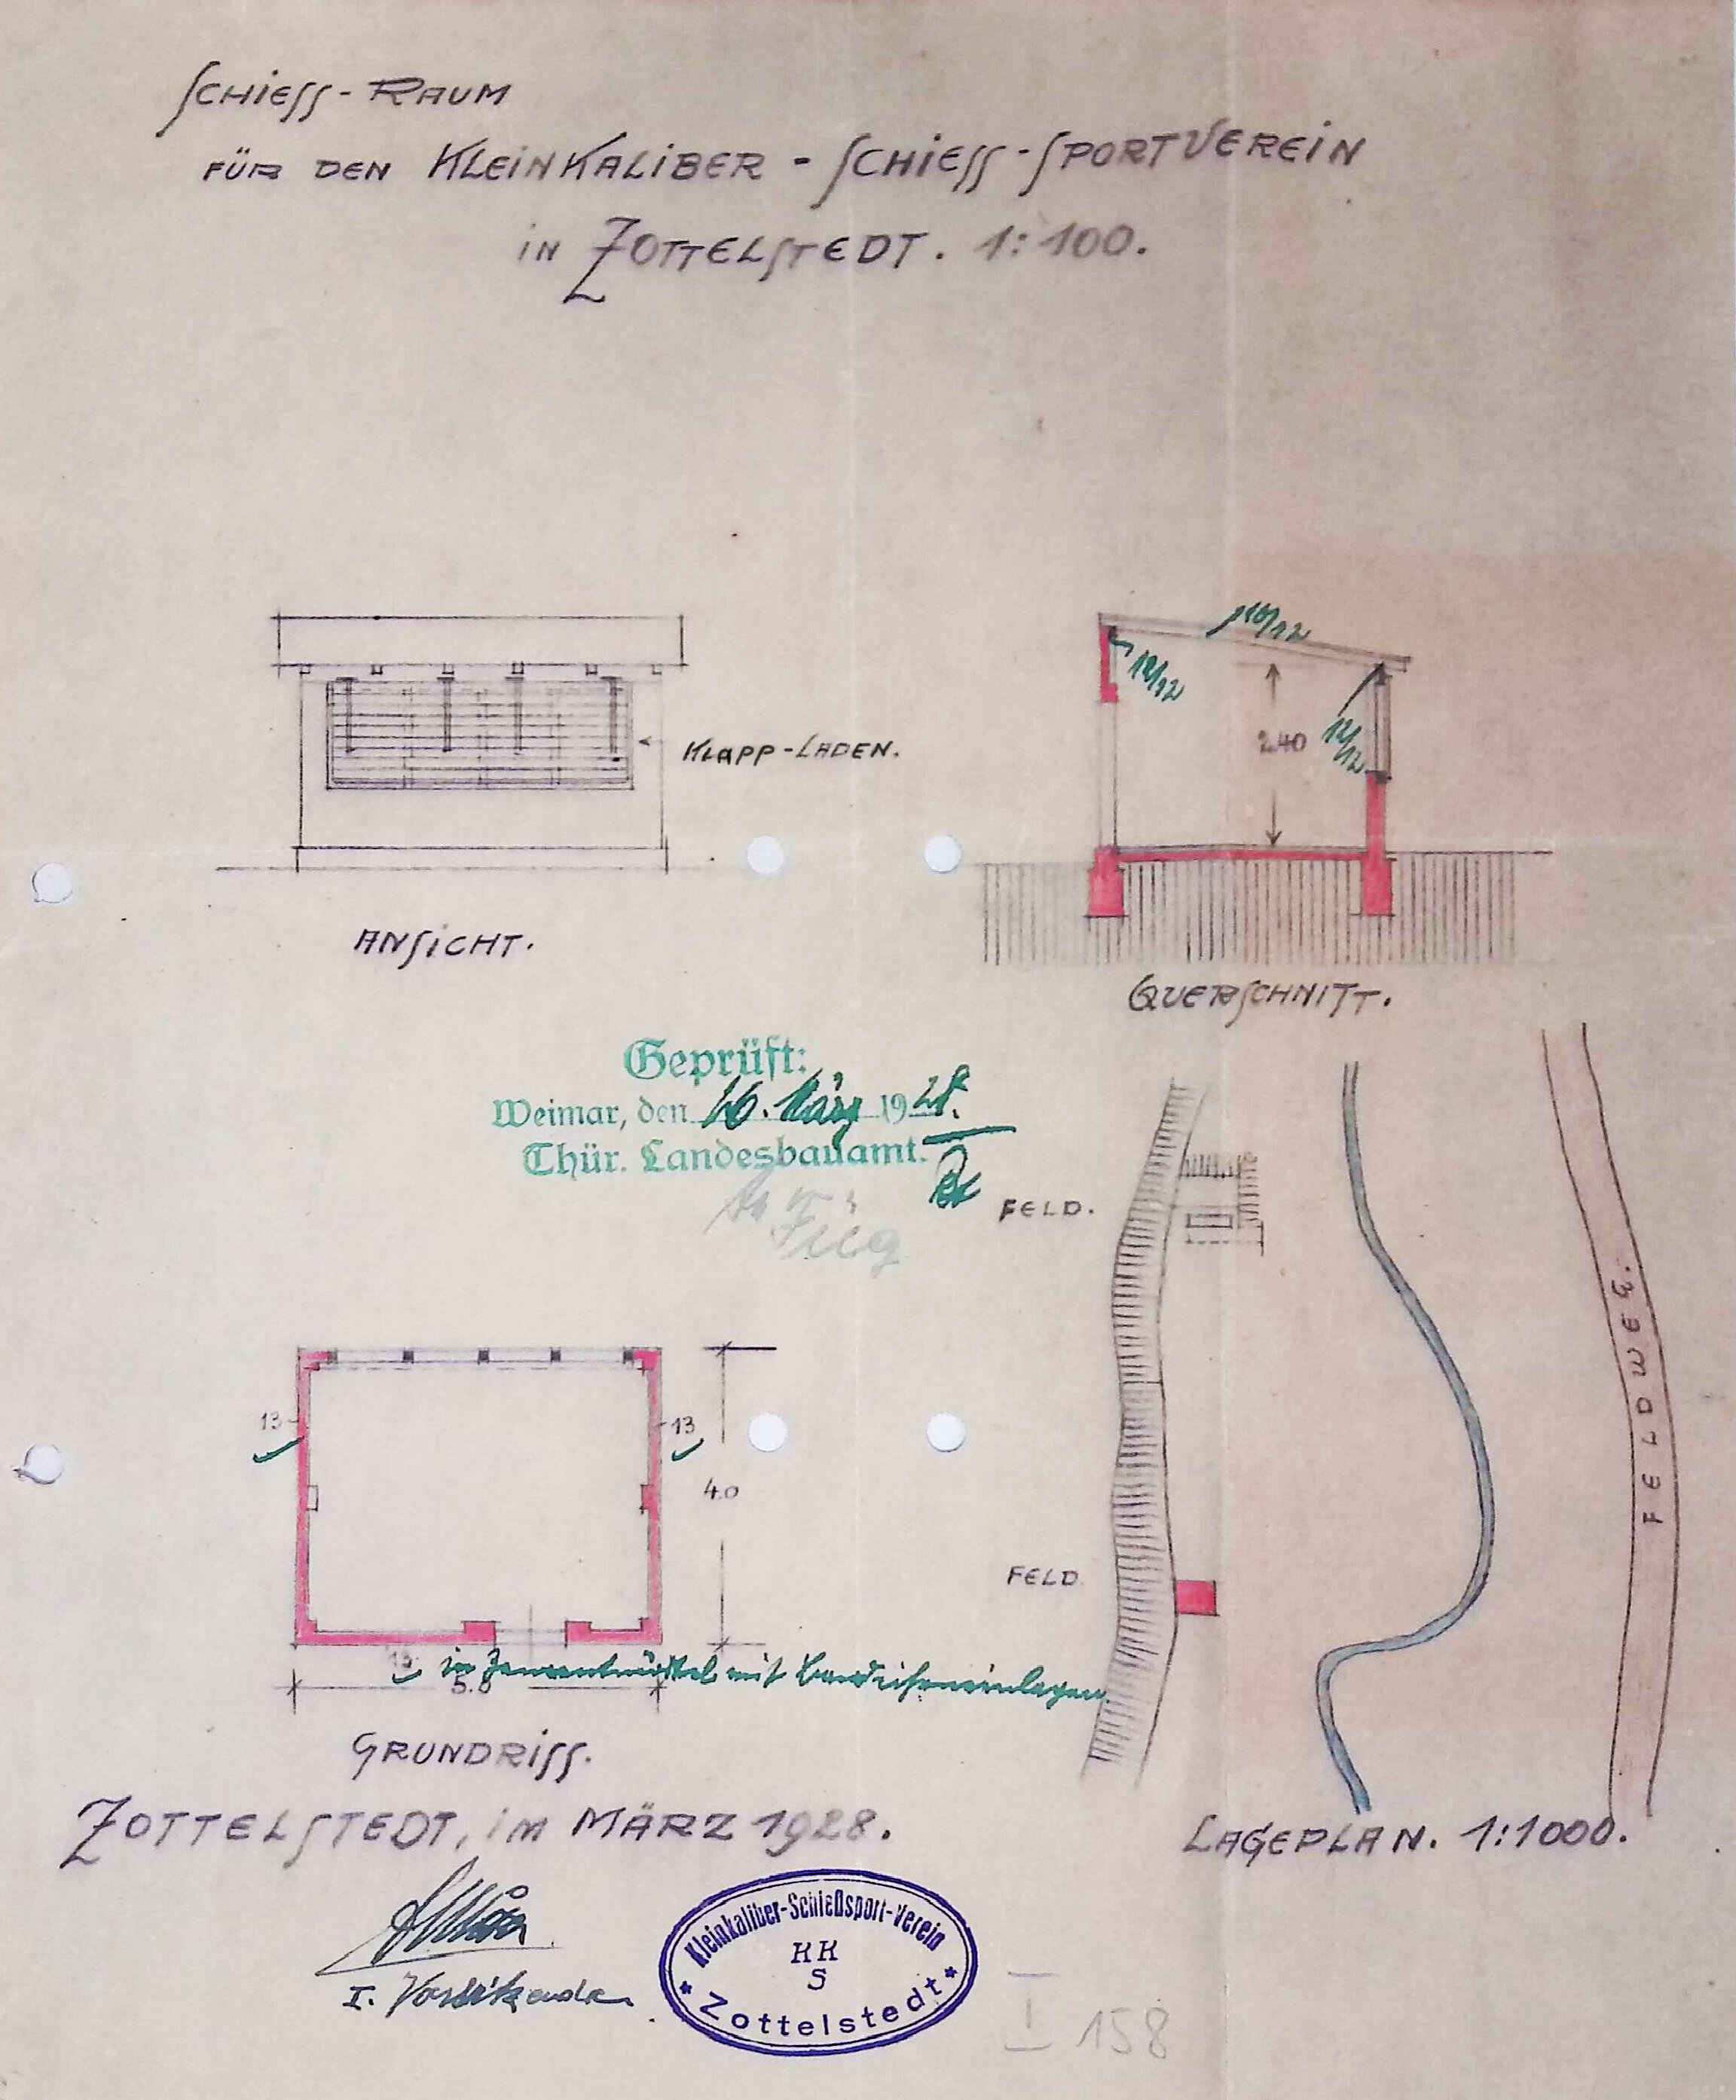 SCHIESS-RAUM
FÜR DEN KLEINKALIBER-SCHIESS-SPORTVEREIN
IN ZOTTELSTEDT. 1:100.
10/12
12/12
2.40
12/12
KLAPP-LADEN.
ANSICHT.
QUERSCHNITT.
Geprüft:
Weimar, den 26. März 1928.
Thür. Landesbauamt.
FELD.
FELDWEG.
13
13
4.0
FELD.
13 in Zementmörtel mit Bandeiseneinlagen.
5.0
GRUNDRISS.
ZOTTELSTEDT, IM MÄRZ 1928.
LAGEPLAN. 1:1000.
I. Vorsitzender
Kleinkaliber-Schießsport-Verein
KK
S
* Zottelstedt *
I 158